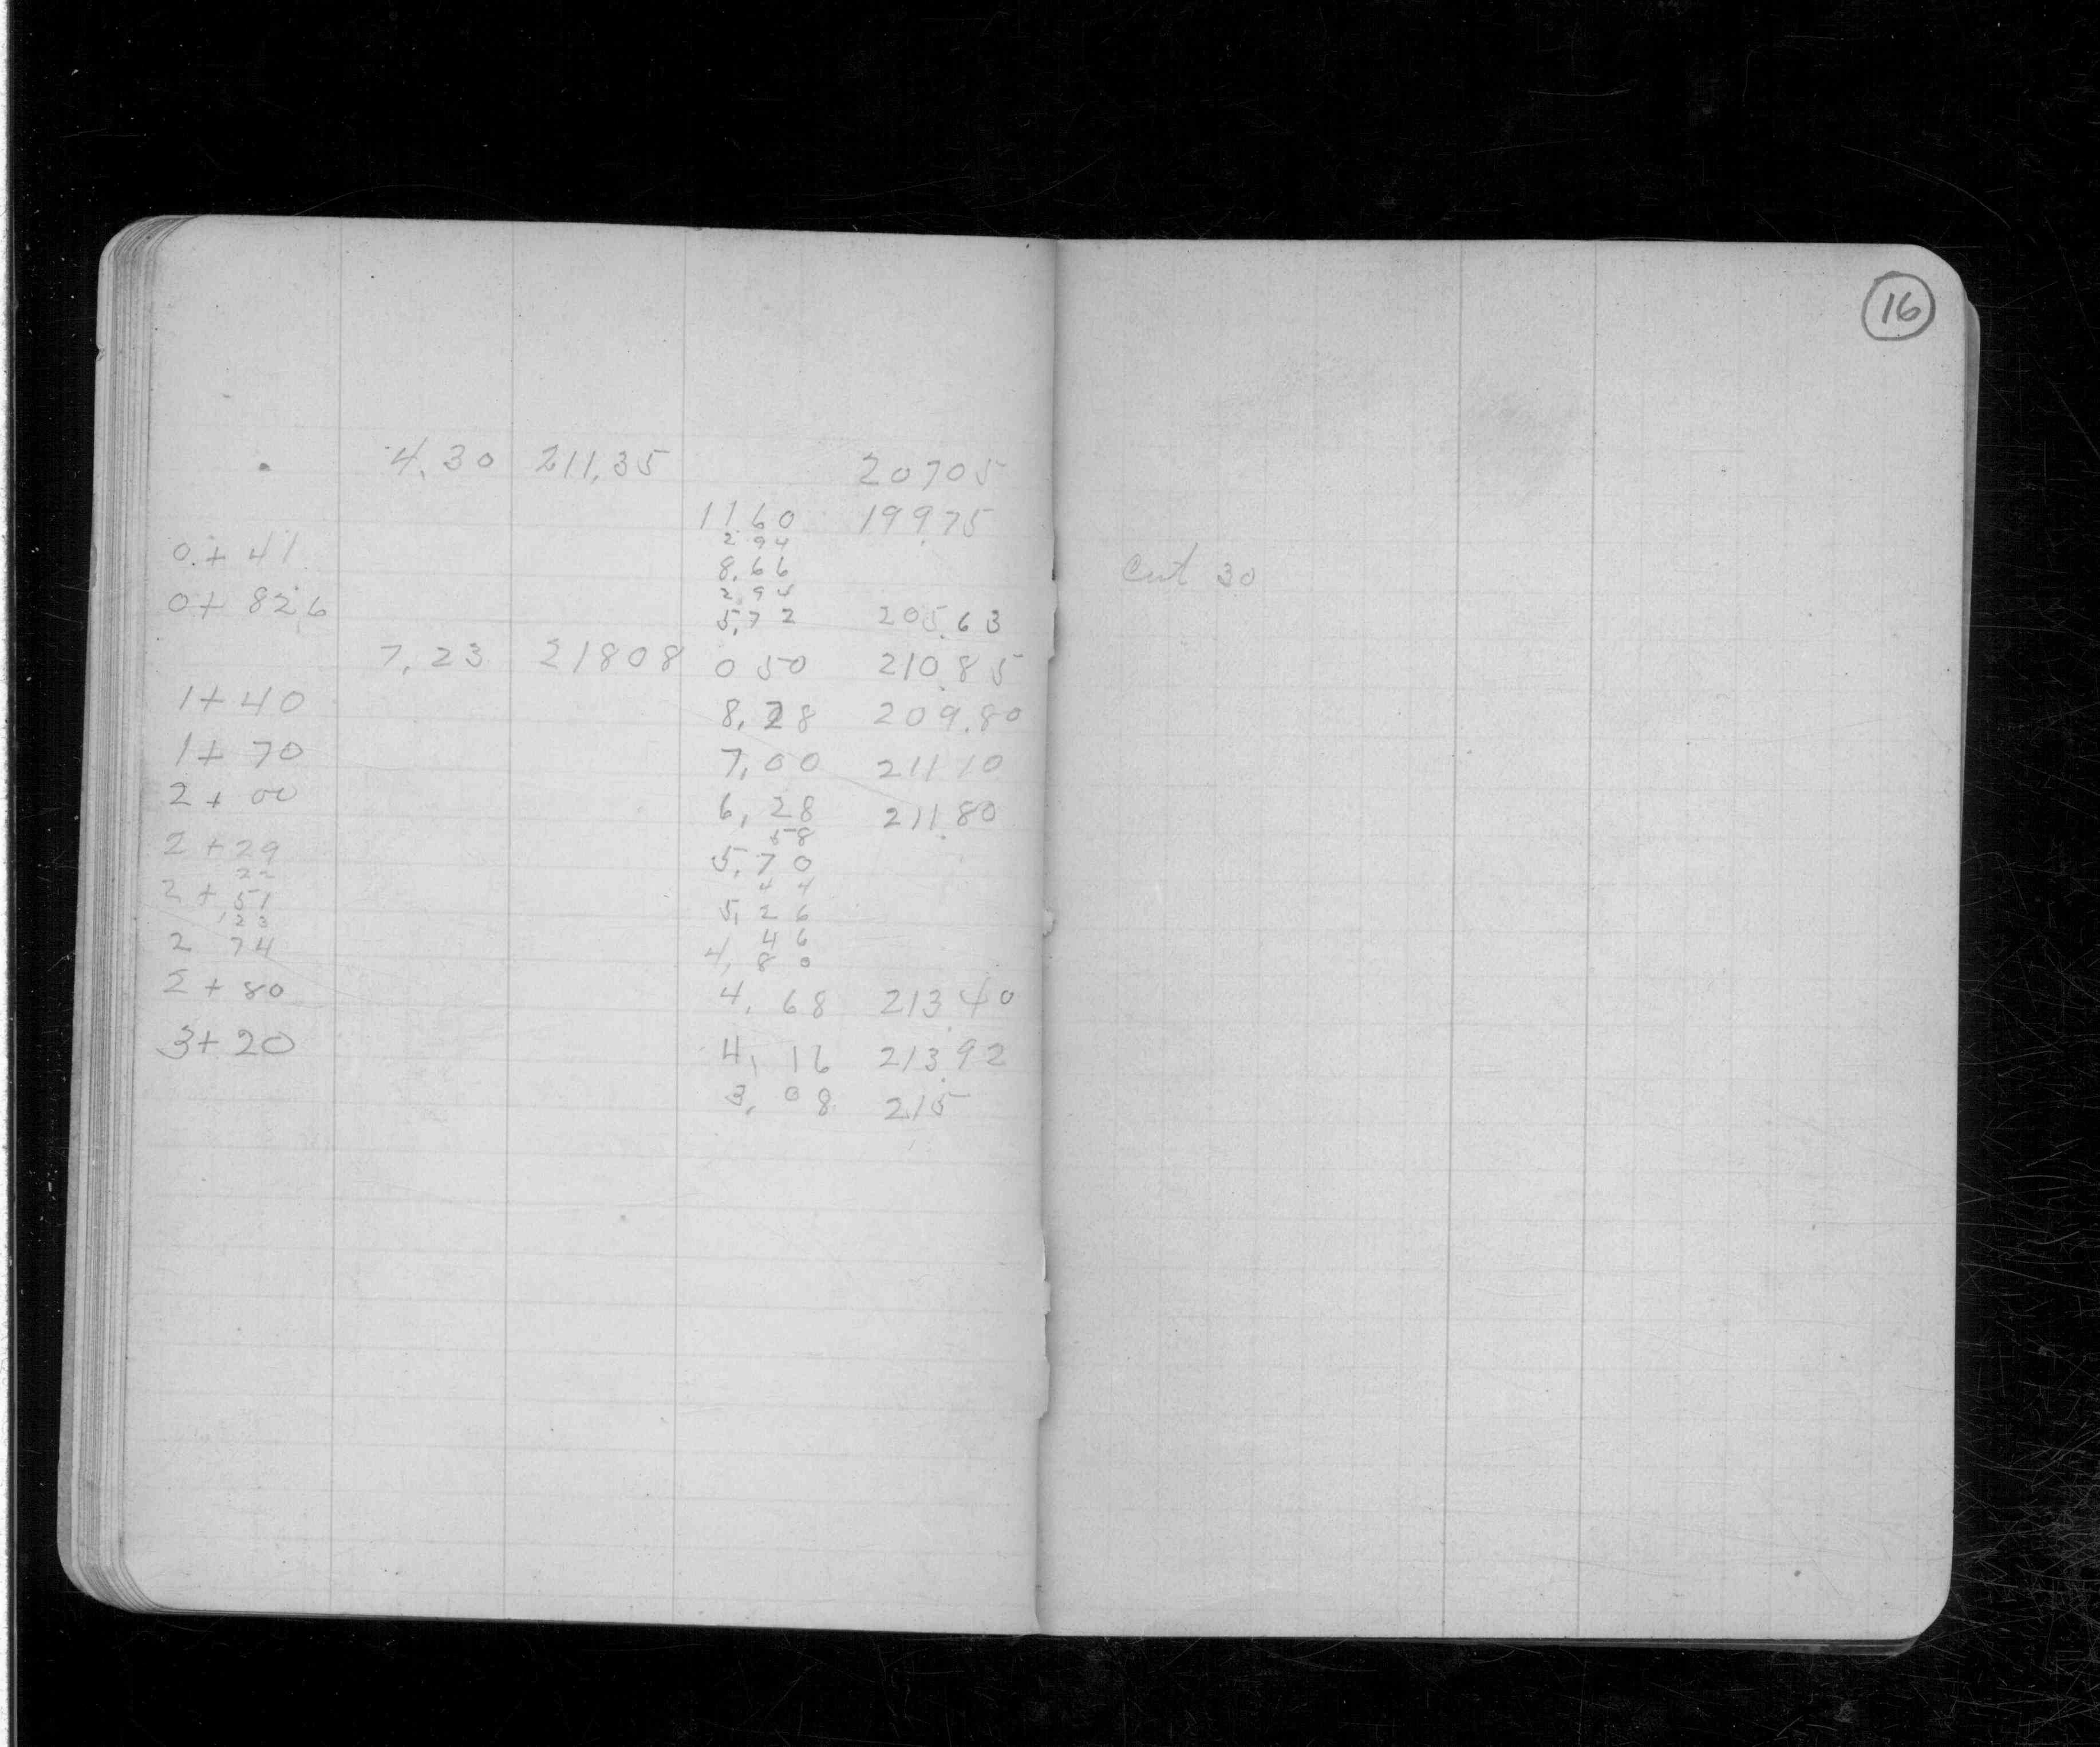 16
4.30 211.35 20705
11 60 199.75
2 94
0 + 41 8.66
2 94
0 + 82.6 5.72 205.63
7.23 21808 0 50 210.85
1 + 40 8.28 209.80
1 + 70 7.00 211 10
2 + 00 6.28 211.80
58
2 + 29 5.70
22 44
2 + 51 5.26
23 46
2 74 4.80
2 + 80 4.68 213.40
3 + 20 4.16 213.92
3.08 215
Cut 30